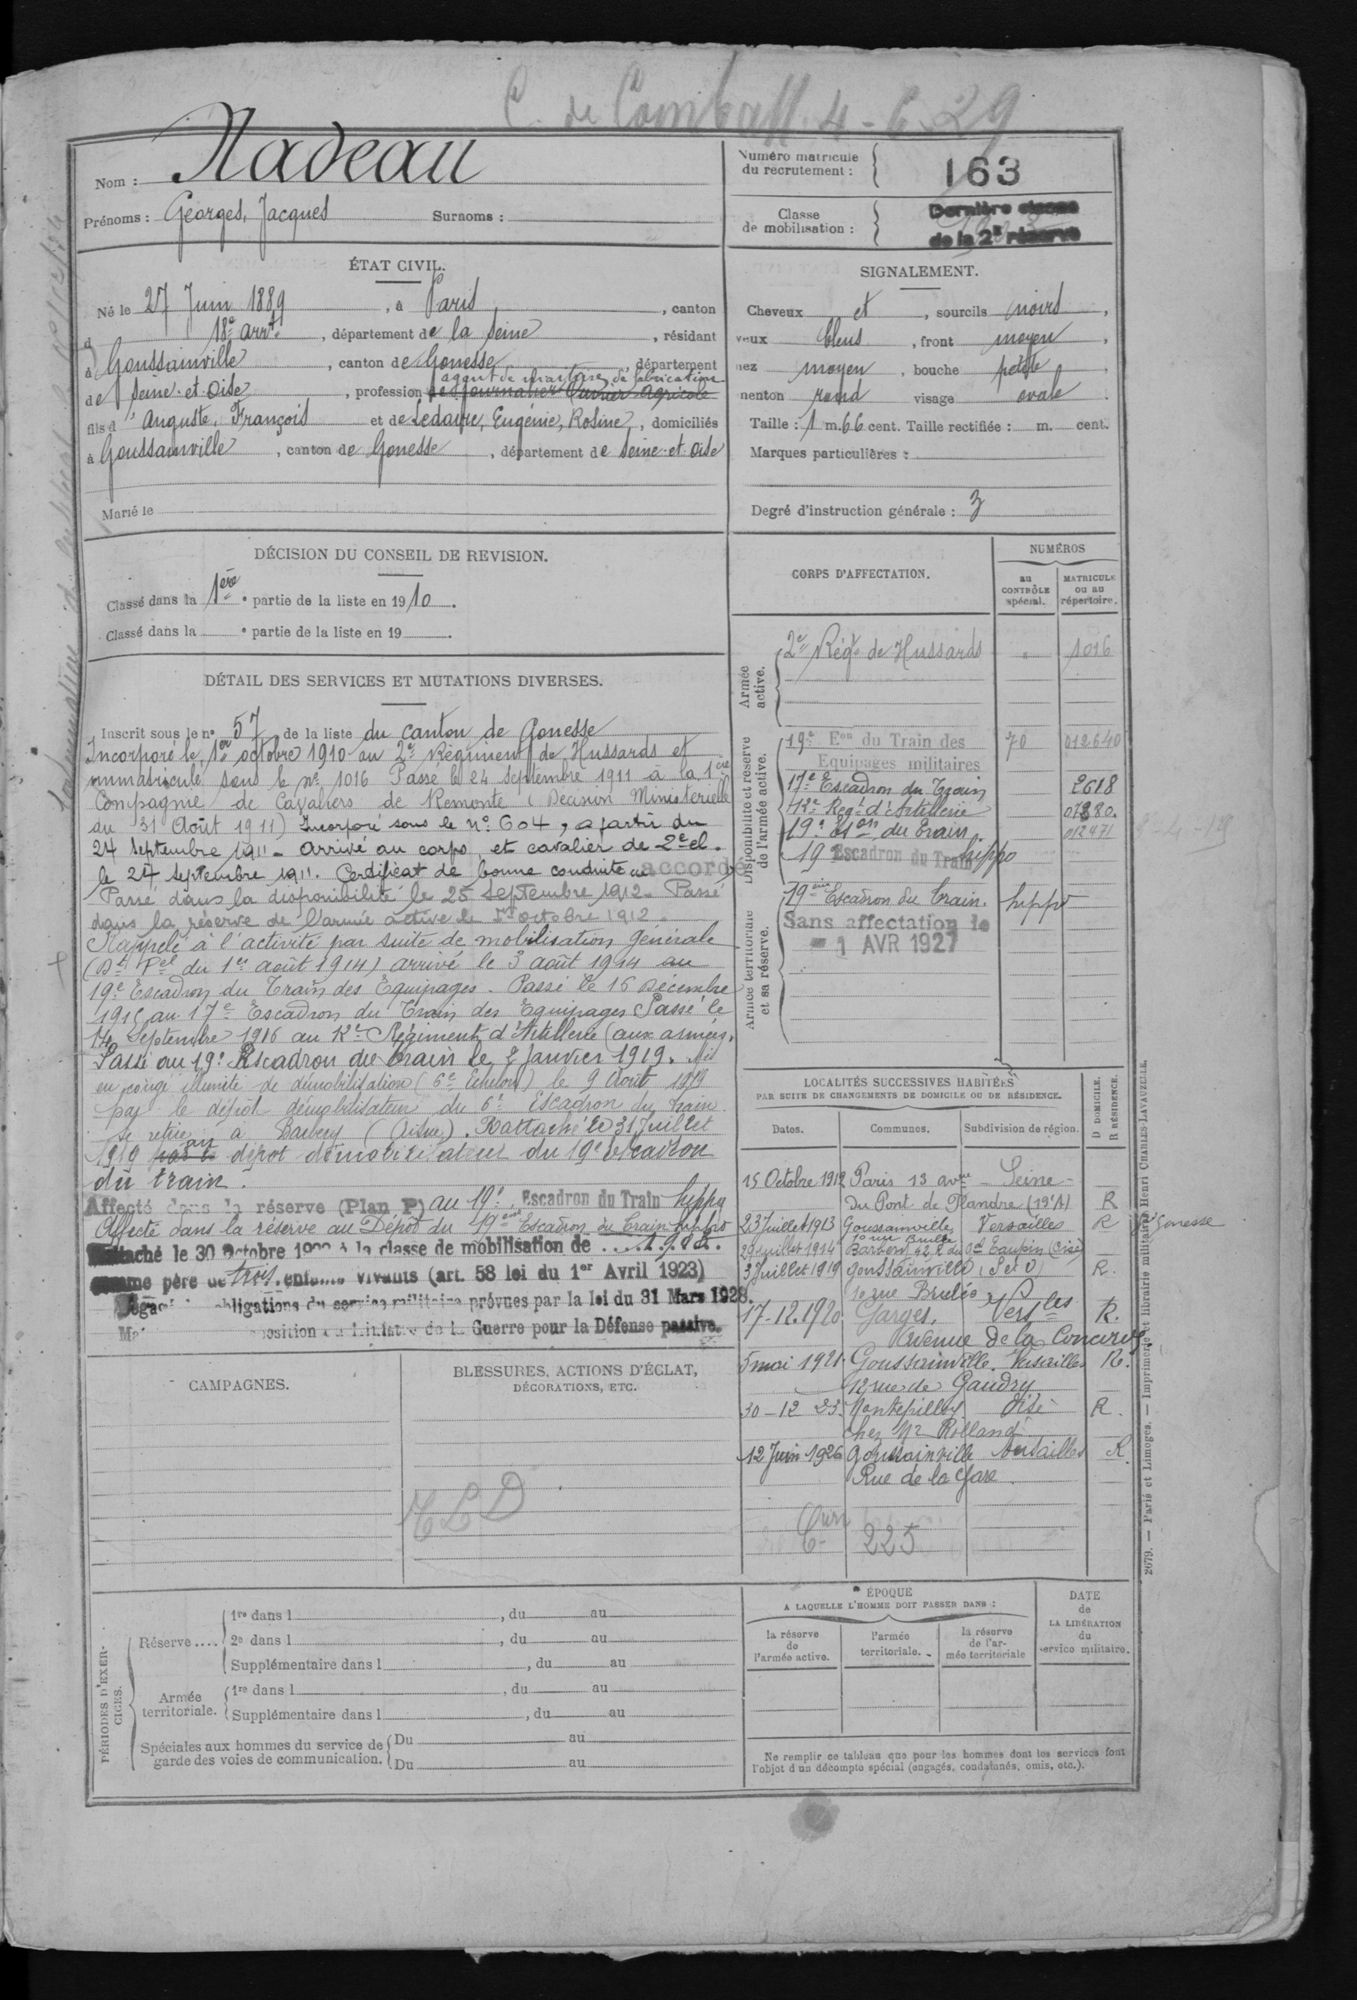 C. de Combatt. 4-6-29
Nom : Nadeau
Prénoms : Georges, Jacques Surnoms :
Numéro matricule
du recrutement : 163
Classe
de mobilisation :
Dernière classe
de la 2e réserve
ÉTAT CIVIL.
Né le 27 Juin 1889, à Paris, canton
d 18e arrt, département de la Seine, résidant
à Goussainville, canton de Gonesse, département
agent de maitrise de fabrication
de Seine-et-Oise, profession de journalier Ouvrier agricole
fils d'Auguste, François et de Ledaire, Eugénie, Rosine, domiciliés
à Goussainville, canton de Gonesse, département de Seine-et-Oise
Marié le
SIGNALEMENT.
Cheveux et, sourcils noirs,
yeux bleus, front moyen,
nez moyen, bouche petite,
menton rond visage ovale.
Taille : 1 m. 66 cent. Taille rectifiée : m. cent.
Marques particulières :
Degré d'instruction générale : 3
DÉCISION DU CONSEIL DE REVISION.
Classé dans la 1ère partie de la liste en 1910.
Classé dans la e partie de la liste en 19
DÉTAIL DES SERVICES ET MUTATIONS DIVERSES.
Inscrit sous le no 57 de la liste du canton de Gonesse
Incorporé le 1er octobre 1910 au 2e Régiment de Hussards et
immatriculé sous le no 1016 Passé le 24 septembre 1911 à la 1ère
Compagnie de Cavaliers de Remonte (Décision Ministérielle
du 31 Août 1911) Incorporé sous le no 604, a partir du
24 septembre 1911 - arrivé au corps, et cavalier de 2e cl.
le 24 septembre 1911. Certificat de bonne conduite accordé
Passé dans la disponibilité le 25 septembre 1912. Passé
dans la réserve de l'armée active le 1er octobre 1912.
Rappelé à l'activité par suite de mobilisation générale
(Dt Pel du 1er août 1914) arrivé le 3 août 1914 au
19e Escadron du Train des Equipages. Passé le 16 Décembre
1915 au 17e Escadron du Train des Equipages Passé le
14 Septembre 1916 au 12e Régiment d'Artillerie (aux armées).
Passé au 19e Escadron du train le 2 Janvier 1919. Mis
en congé illimité de démobilisation (6e Echelon) le 9 Août 1919
par le dépôt démobilisateur du 6e Escadron du train
se retire à Barbery (Oise). Rattaché le 31 Juillet
1919 par le au dépôt démobilisateur du 19e Escadron
du train.
Affecté dans la réserve (Plan P) au 19e Escadron du Train hippo
Affecté dans la réserve au Dépôt du 19ème Escadron du Train hippo
Rattaché le 30 Octobre à la classe de mobilisation de
comme père de trois enfants vivants (art. 58 loi du 1er Avril 1923)
Dégagé obligations du service militaire prévues par la loi du 31 Mars 1928.
Ma position du Ministre de la Guerre pour la Défense passive.
CORPS D'AFFECTATION.
NUMÉROS
au
CONTRÔLE
spécial.
MATRICULE
OU AU
répertoire.
Armée
active.
2e Régt de Hussards " 1016
Disponibilité et réserve
de l'armée active.
19e Eon du Train des 70 012640
Equipages militaires
17e Escadron du Train 2618
12e Regt d'Artillerie 07880.
19e Eon du Train. 012471
19 Escadron du Train hippo
Armée territoriale
et sa réserve.
19ème Escadron du train. hippo
Sans affectation le
1 AVR 1927
LOCALITÉS SUCCESSIVES HABITÉES
PAR SUITE DE CHANGEMENTS DE DOMICILE OU DE RÉSIDENCE.
D DOMICILE.
R RÉSIDENCE.
Dates. Communes. Subdivision de région.
15 Octobre 1912 Paris 13 avnue Seine
du Pont de Flandre (19e A) R
23 Juillet 1913 Goussainville Versailles R
10 rue Brulée
29 juillet 1914 Barbery
3 Juillet 1919 Goussainville (S et O) R.
10 rue Brulée
17-12-1920 Garges. Versles R.
Avenue de la Concorde
5 mai 1921. Goussainville. Versailles R.
12 rue de Gaudry
30-12 23. Montepilloy Oise R.
chez Mr Rolland
12 Juin 1926 Goussainville Versailles R.
Rue de la Gare.
225
CAMPAGNES.
BLESSURES, ACTIONS D'ÉCLAT,
DÉCORATIONS, ETC.
PÉRIODES D'EXERCICES.
Réserve....
1re dans l, du au
2e dans l, du au
Supplémentaire dans l, du au
Armée
territoriale.
1re dans l, du au
Supplémentaire dans l, du au
Spéciales aux hommes du service de
garde des voies de communication.
Du au
Du au
ÉPOQUE
A LAQUELLE L'HOMME DOIT PASSER DANS :
la réserve
de
l'armée active.
l'armée
territoriale.
la réserve
de l'ar-
mée territoriale
DATE
de
LA LIBÉRATION
du
service militaire.
Ne remplir ce tableau que pour les hommes dont les services font
l'objet d'un décompte spécial (engagés, condamnés, omis, etc.).
2679. — Paris et Limoges. — Imprimerie et librairie militaires Henri CHARLES-LAVAUZELLE.